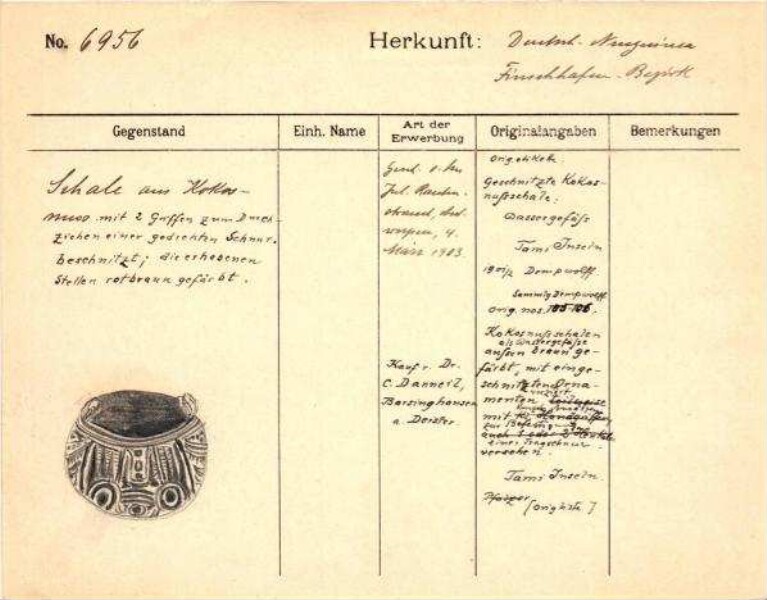 No. 6956
Herkunft: Deutsch. Neuguinea
Finschhafen-Bezirk
Gegenstand
Einh. Name
Art der
Erwerbung
Originalangaben
Bemerkungen
Schale aus Kokos-
nuss mit 2 zum Durch-
ziehen einer gedrehten Schnur.
beschnitzt; die erhobenen
Stellen rotbraun gefärbt.
Jul.
4.
März 1903.
Kauf v. Dr.
C. Danneil,
Barsinghausen
a. Deister.
Orig. etikett.
Geschnitzte Kokos-
nußschale:
Wassergefäß
Tami Inseln
Dempwolff.
Sammlg Dempwolff
orig. nos. 105-106.
Kokosnußschalen
als Wassergefäße
außen braun ge-
färbt, mit einge-
schnitzten Orna-
menten teilweise
mit
zur
auch 1 oder 2
einer Tragschnur
versehen.
Tami Inseln.
[Origliste]